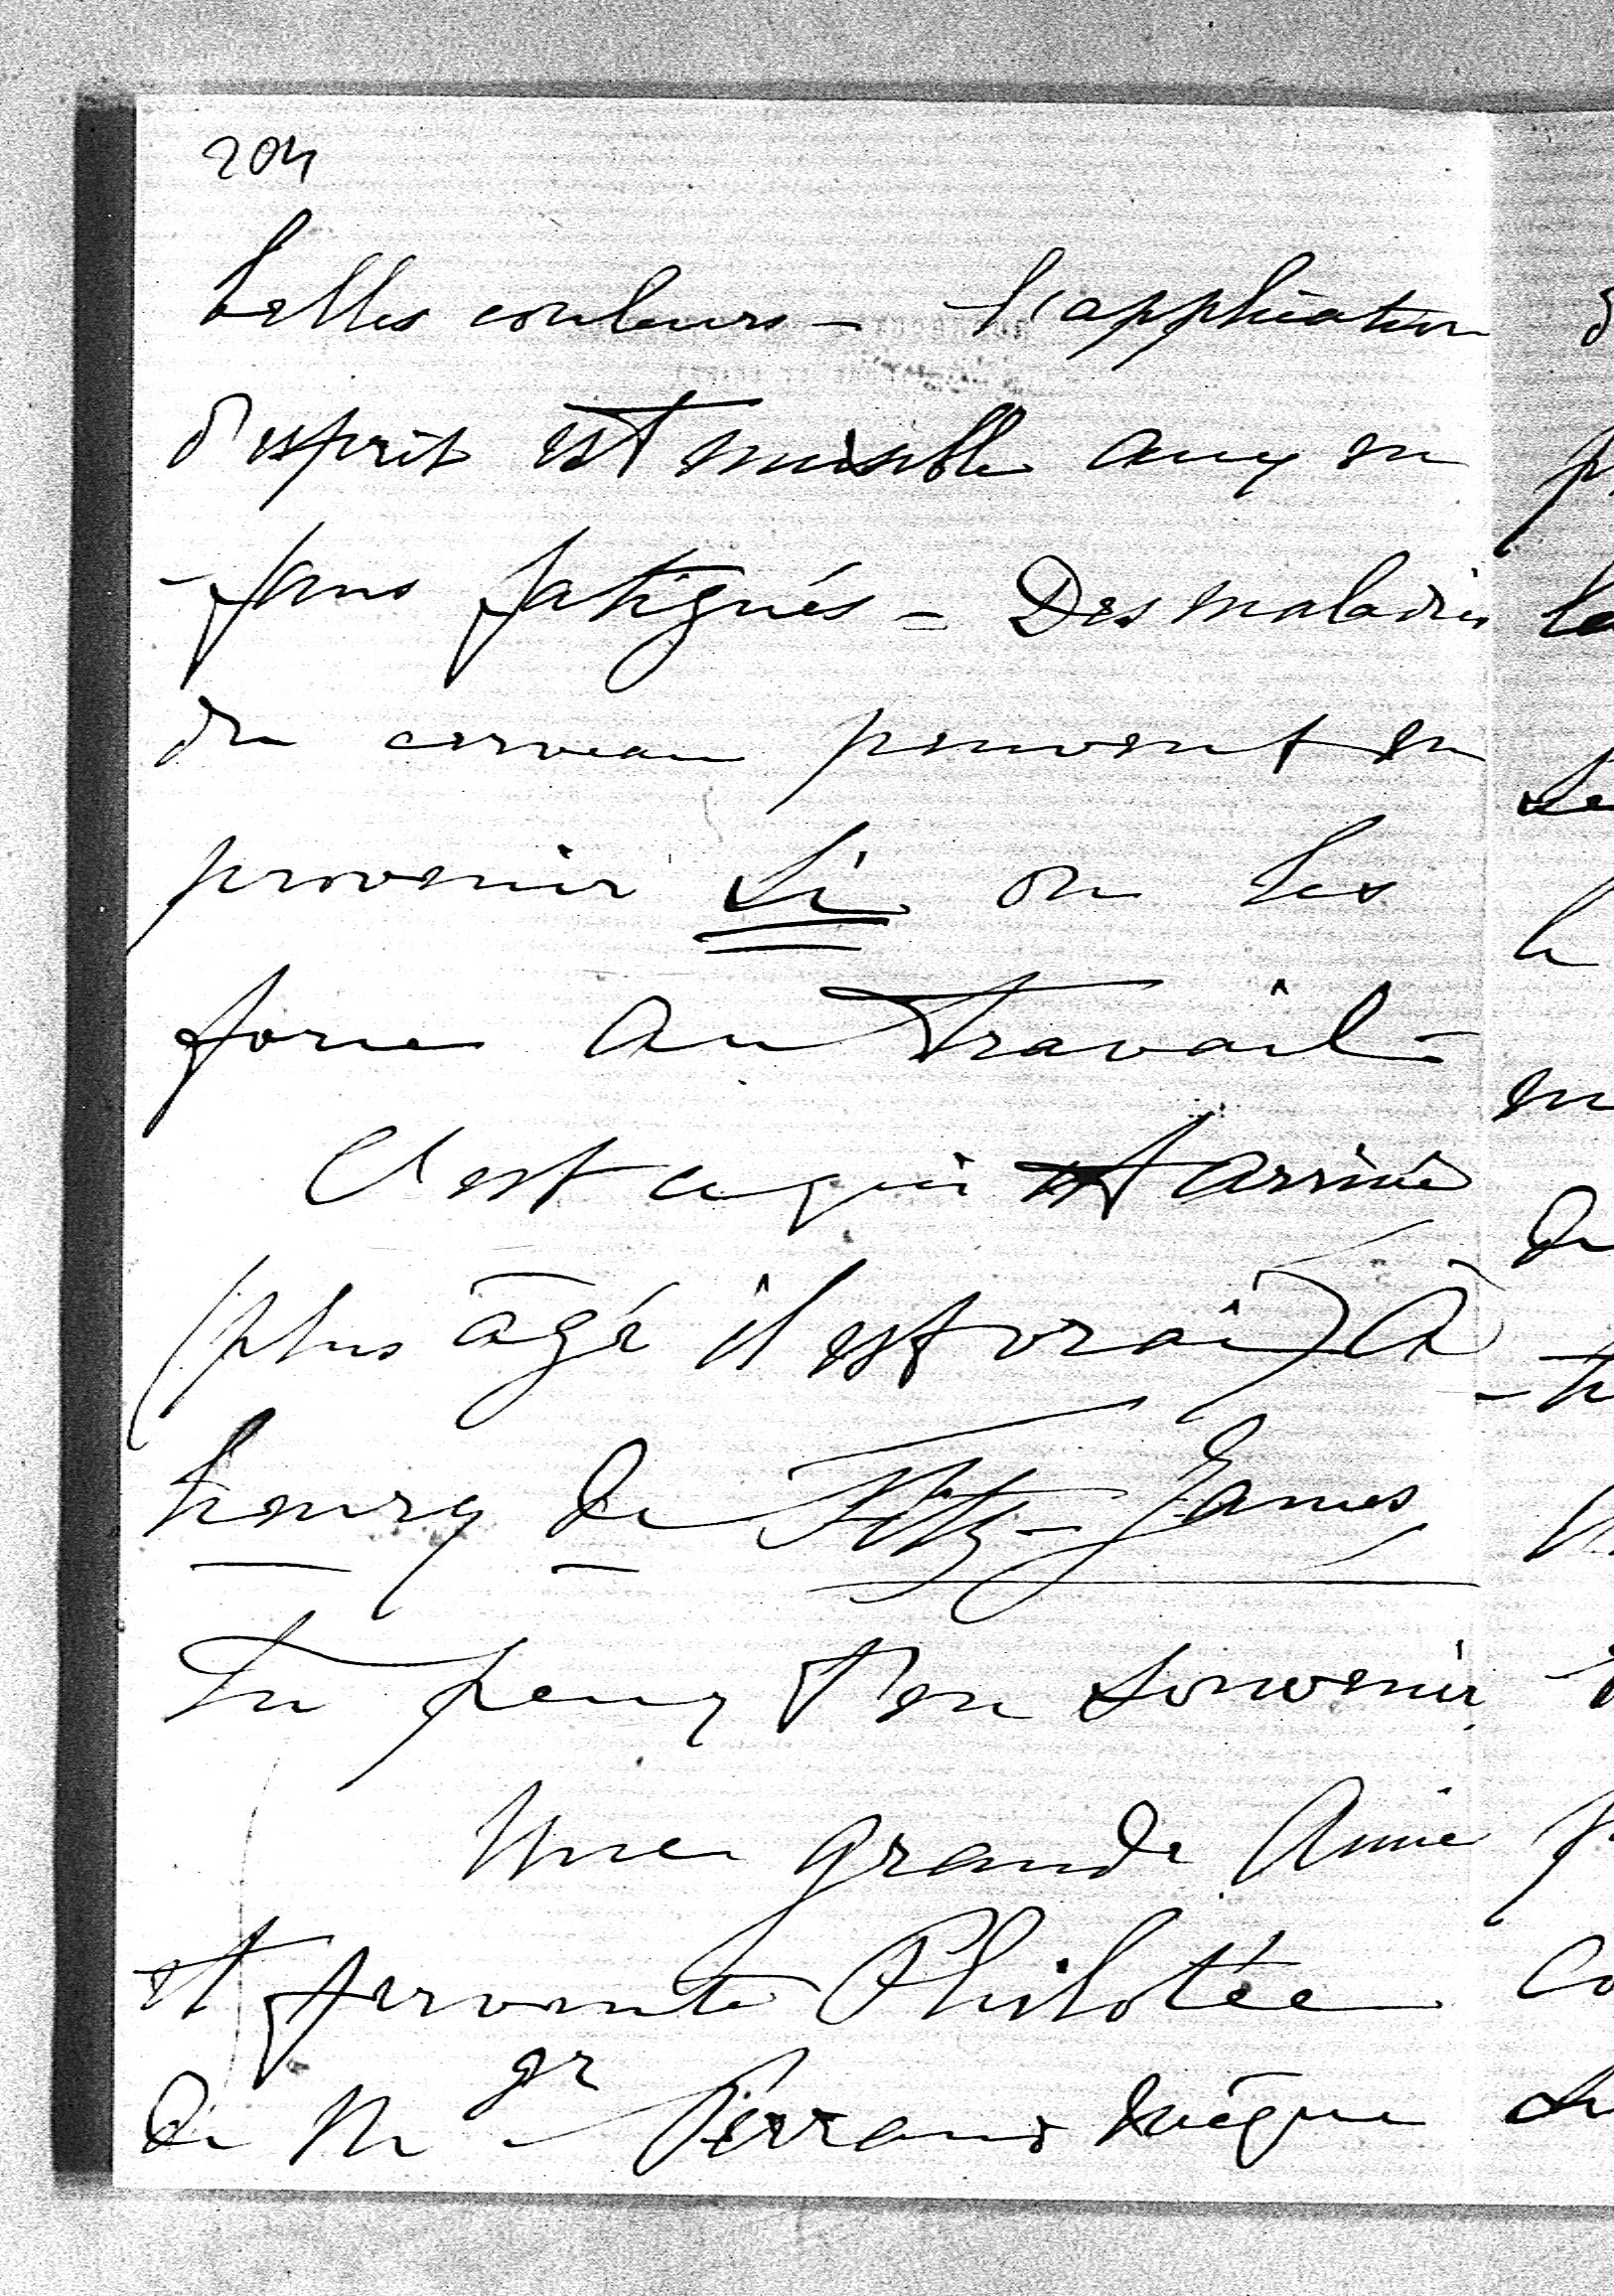 204
belles couleurs - L'application
d'esprit est nuisible aux en
-fans fatigués = Des maladies
du cerveau peuvent en
provenir Si on les
force au travail -
C'est ce qui est arrivé
(plus âgé il est vrai) à
henry de Fitz-James
Tu peux t'en souvenir
Une grande Amie
et fervente Philotée
de Mgr Perraud Evêque